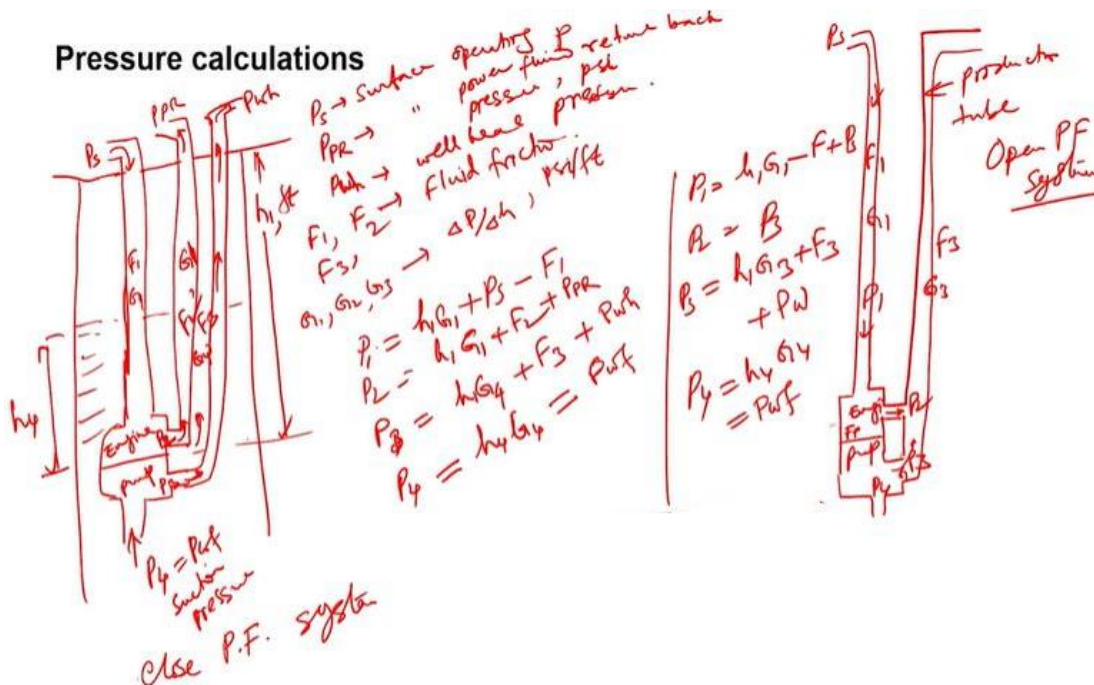 Pressure calculations
Ps → surface operating P
PPR → " power fluid return back pressure, psi
Pwh → well head pressure.
F1, F2 → Fluid friction
F3,
G1, G2, G3 → ΔP/Δh, psi/ft
P1 = h1G1 + Ps - F1
P2 = h1G1 + F2 + PPR
P3 = h1G4 + F3 + Pwh
P4 = h4G4 = Pwf
Ps
PPR
Pwh
h1, ft
F1
G1
G1
F2
F3
G4
h4
Engine
P2
Pump
P3
P4 = Pwf
suction
pressure
Close P.F. system
P1 = h1G1 - F + P
P2 = P3
P3 = h1G3 + F3
+ Pw
P4 = h4G4
= Pwf
Ps
F1
G1
P1
production
tube
Open PF
system
F3
G3
Engi
P2
pump
P3
P4